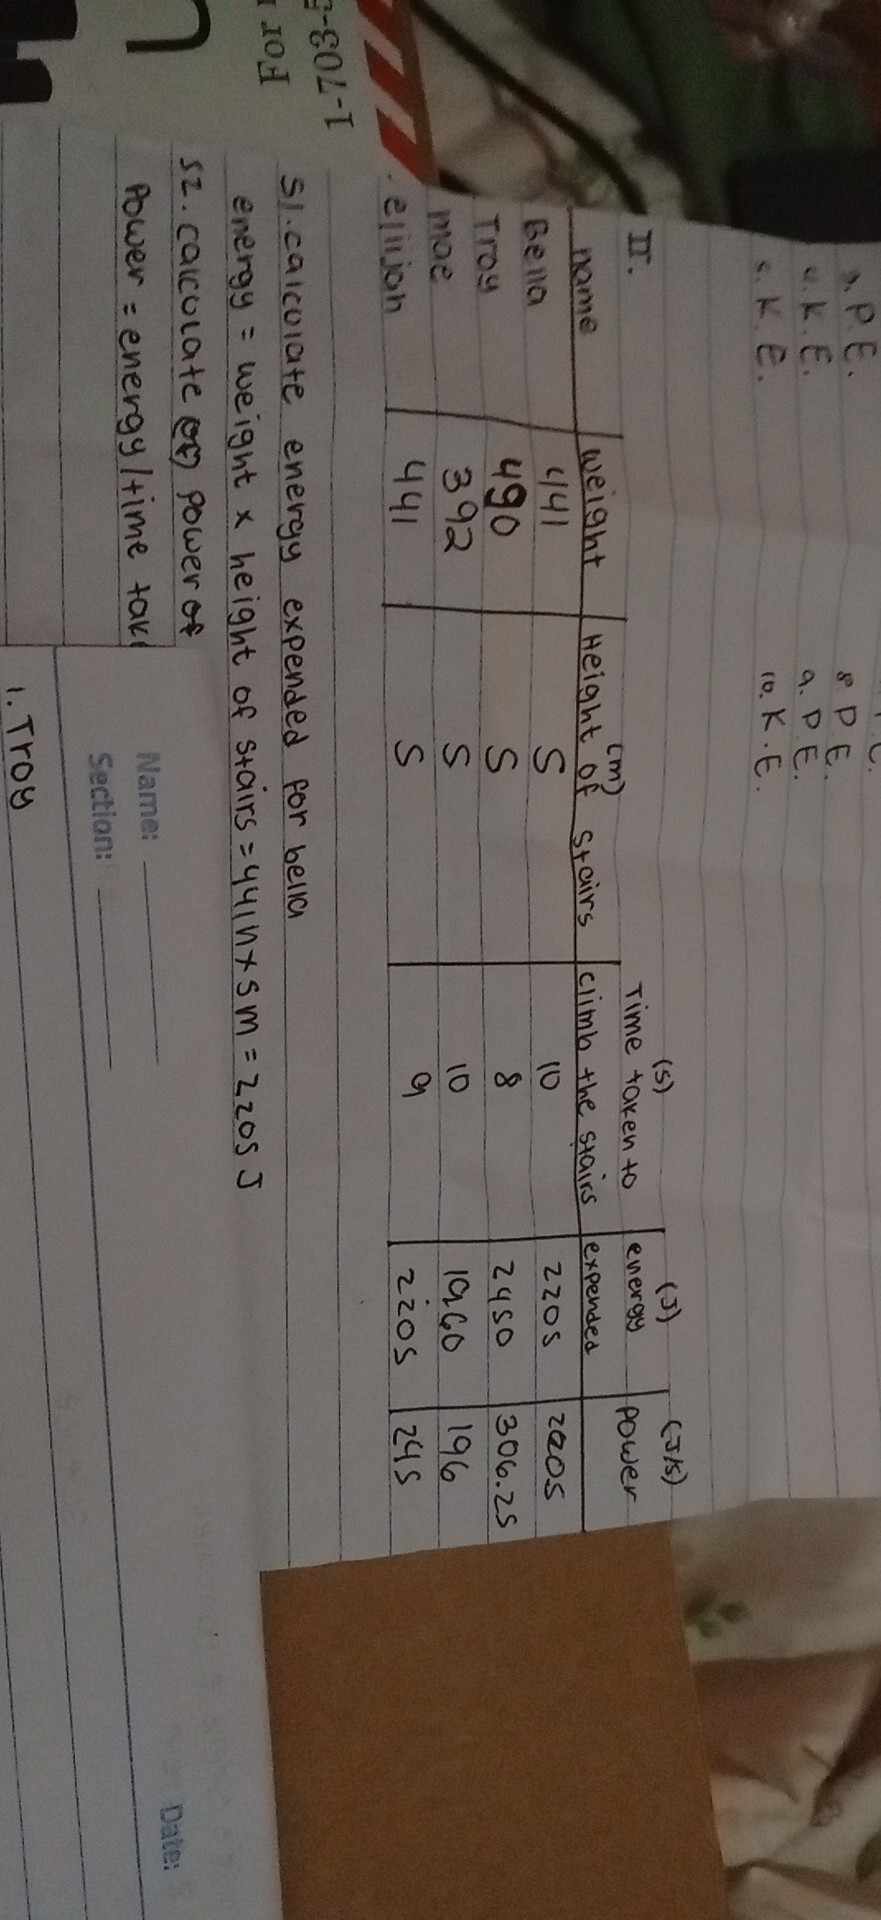 P.E.
K.E.
K.E.
8. P.E.
9. P.E.
10. K.E.
II.
name
weight
(m)
Height of stairs
(s)
Time taken to
climb the stairs
(J)
energy
expended
(J/s)
power
Bella 441 5 10 2205
Troy 490 5 8 2450 306.25
moe 392 5 10 1960 196
elijah 441 5 9 2205 245
S1. calculate energy expended for bella
energy = weight x height of stairs = 441n x 5m = 2205 J
S2. calculate power of
power = energy/time
1. Troy
Name:
Section:
Date:
1-708-
For